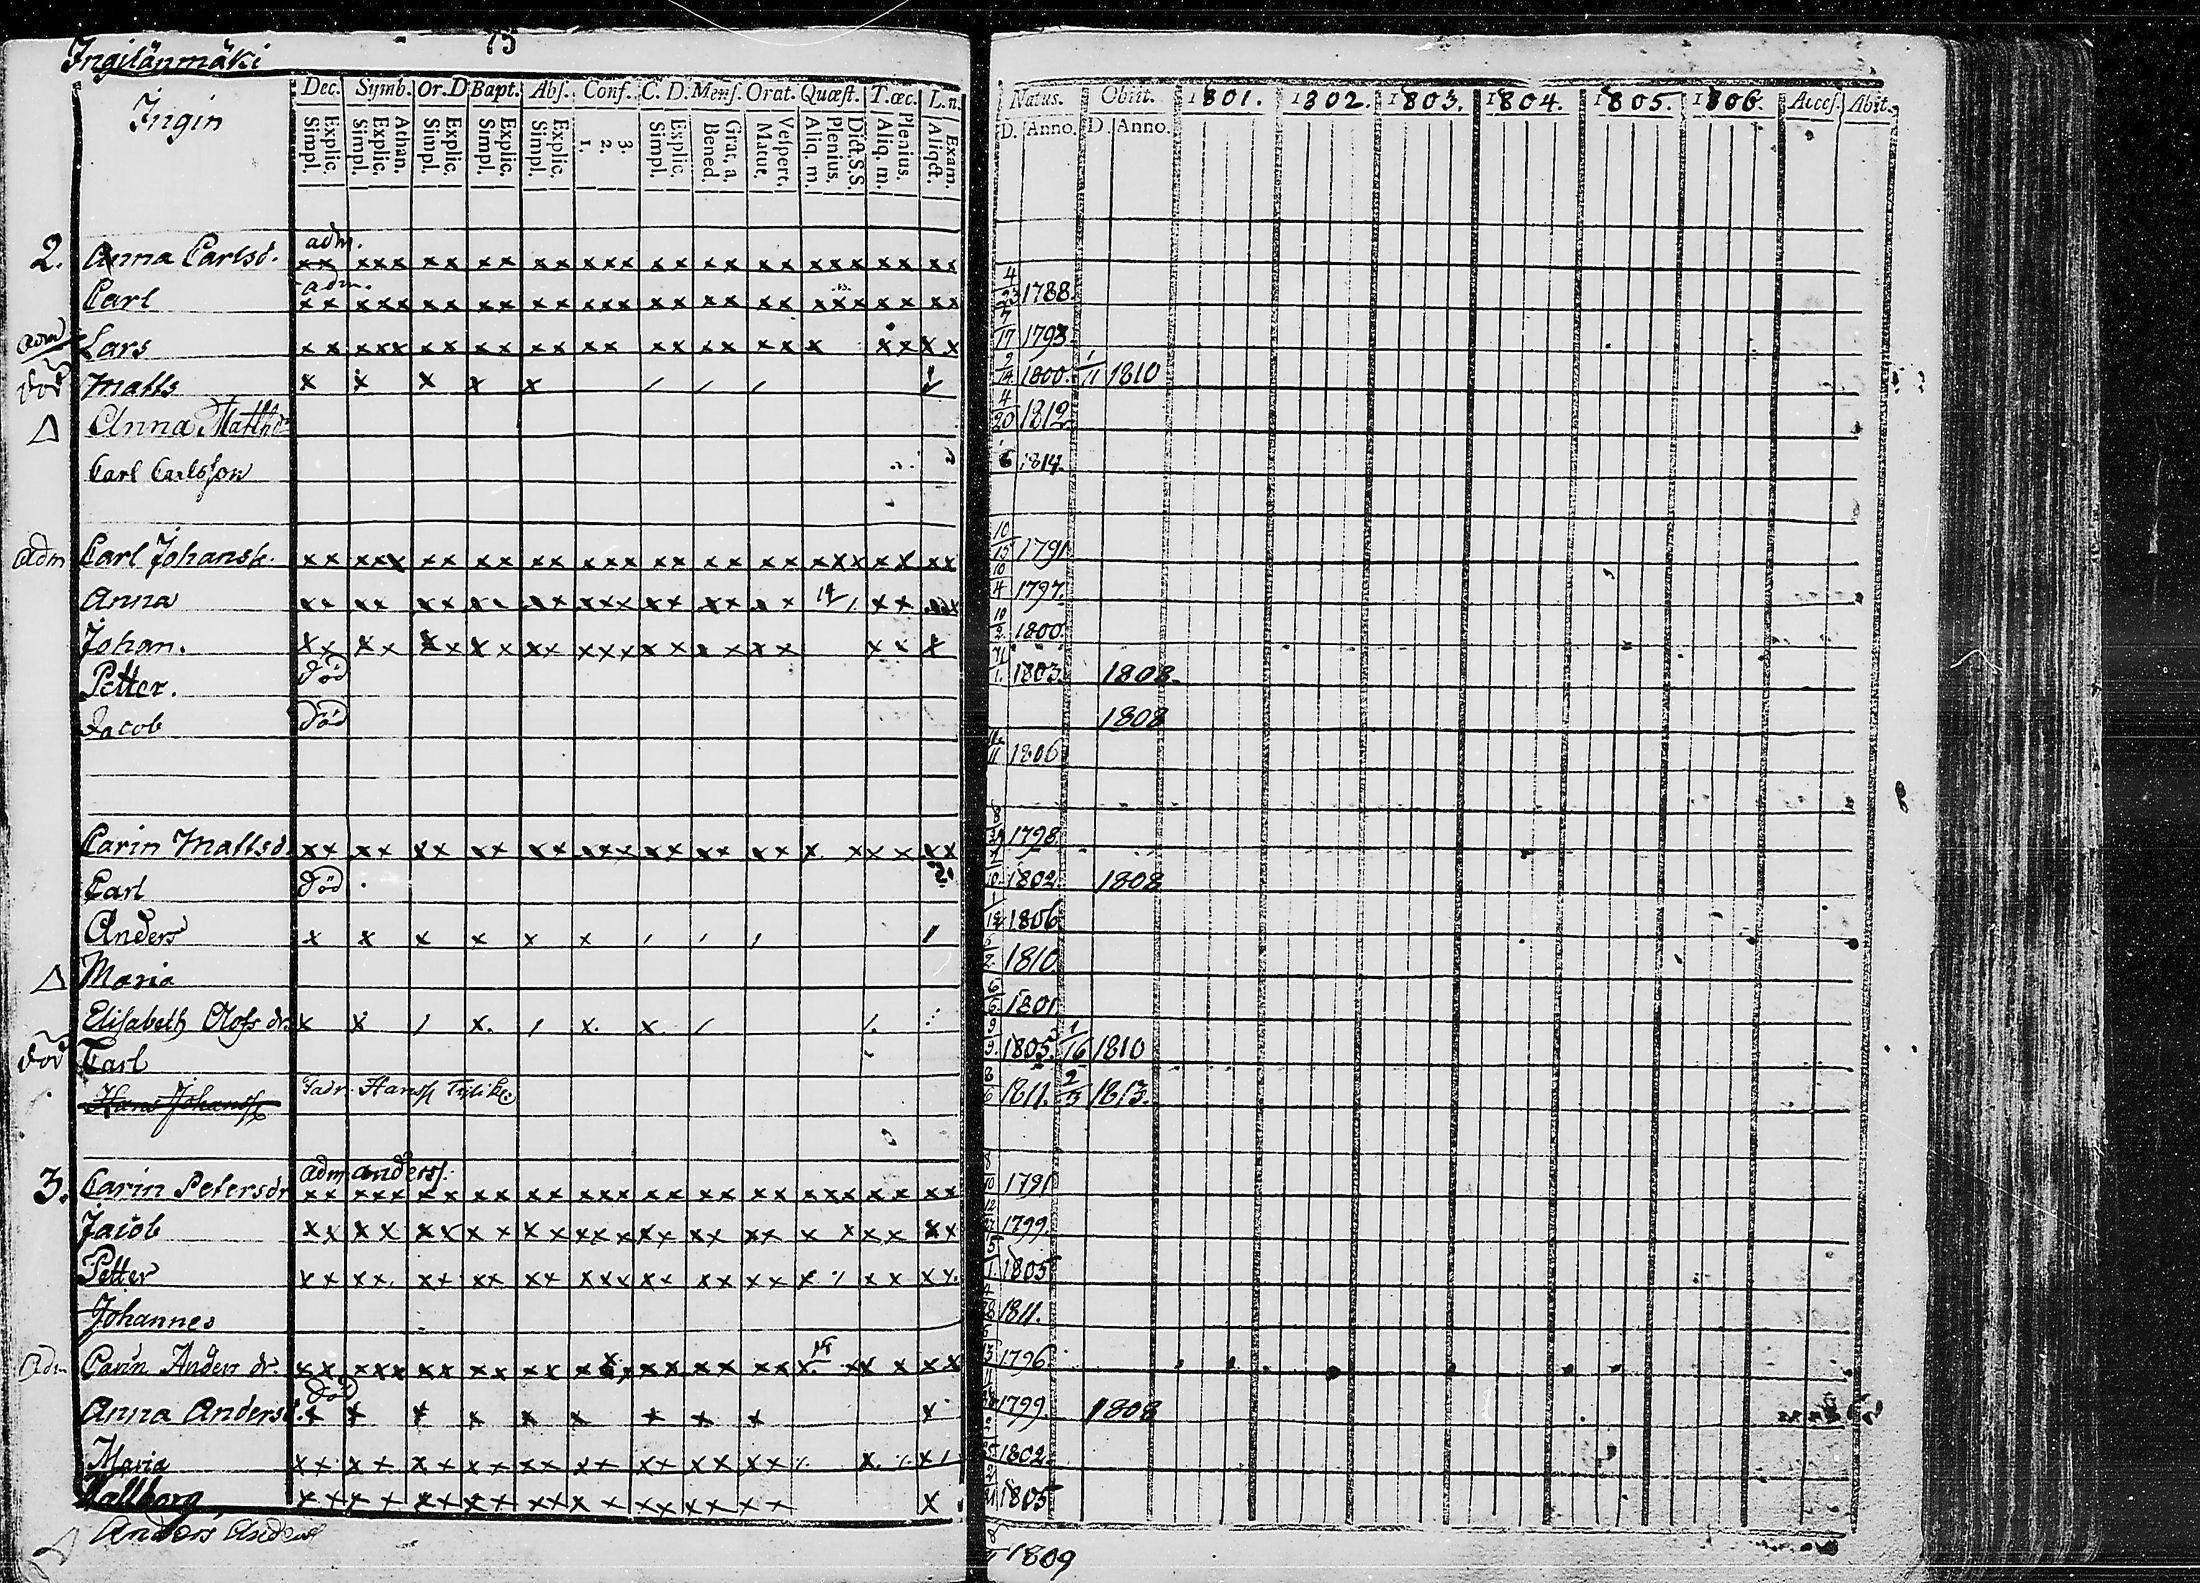 75
Ingilänmäki
Ingin
Dec. Symb. Or. D Bapt. Abs. Conf. C. D. Mens. Orat. Quæst. T. œc. L. n.
Explic. Simpl. Athan. Explic. Simpl. Explic. Simpl. Explic. Simpl. Explic. Simpl. 3. 2. 1. Explic. Simpl. Grat. a. Bened. Vespert. Matut. Dict. S. S. Plenius. Aliq. m. Plenius. Aliq. m. Exam. Aliqct.
Natus. Obiit. 1801. 1802. 1803. 1804. 1805. 1806. Acces. Abit.
D. Anno. D. Anno.
adm.
2. Anna Carlsd. xx xxx xx xx xx xxx xx xx xx xxx xx xx
adm.
Carl xx xxx xx xx xx xxx xx xx xx xxx xx xx 4/23 1788.
adm Lars xx xxx xx xx xx xx xx xx xx x xx xx 7/17 1793
död Matts x x x x x 9/14 1800. 1/11 1810
Δ Anna Matthsdr 4/20 1812
Carl Carlsson 6 1814.
adm Carl Johansk. xx xxx xx xx xx xxx xx xx xx xxx xx xx 10/15 1791
Anna xx xx xx xx xx xxx xx xx xx xx 10/4 1797.
Johan. xx xx xx xx xx xxx xx xx xx xx x 10/2 1800.
Petter. död 1803. 1808.
Jacob död 1808
1806
Carin Mattsd. xx xx xx xx xx xxx xx xx xx x x xx xx 1798.
Carl död. 1802. 1808
Anders x x x x x x 1806
Δ Maria 1810
Elisabeth Olofs dr. x x / x. / x. x. / 6/6 1801
död Carl 9/9. 1805. 1/16 1810
Hans Johanss 8/6 1811. 1813.
adm anderss.
3. Carin Petersdr xx xxx xx xx xx xxx xx xx xx xxx xx xx 8/10 1791
Jacob xx xx xx xx xx xxx xx xx xx x x xx xx 1799.
Petter xx xx. xx xx xx xxx xx xx xx x xx 5/1 1805
Johannes 1811.
adm Carin Anders dr. xx xxx xx xx xx xx xx xx xx xx xx 1796
död
Anna Andersd. x x x x x x x x x x 1799. 1808
Maria xx xx xx xx xx xx xx xx xx x. x 1802.
Wallborg xx xx xx xx xx xx xx xx xx x 1805
Δ Anders Anders 1809